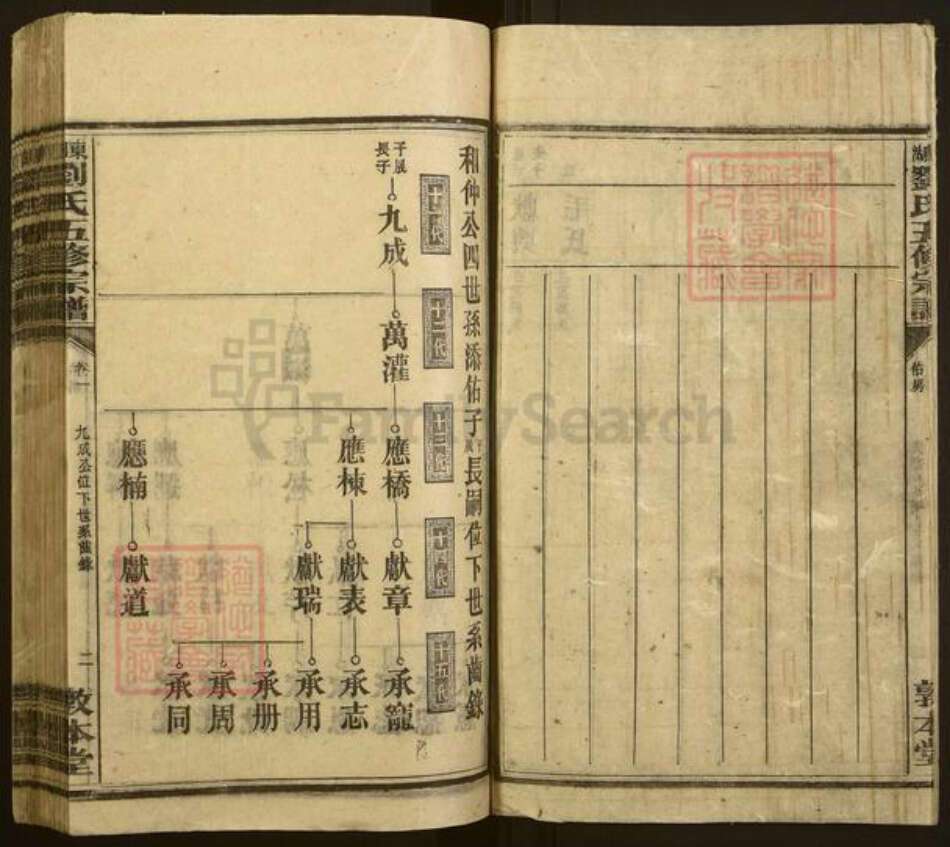 劉氏五修宗譜
敦本堂
和仲公四世孫添佑子長嗣位下世系齒錄
十一代
十二代
十三代
十四代
十五代
長子
九成
萬灌
應橋
應棟
應楠
獻章
獻表
獻瑞
獻道
承寵
承志
承用
承册
承周
承同
劉氏五修宗譜
卷一
九成公位下世系齒錄
二
敦本堂
FamilySearch